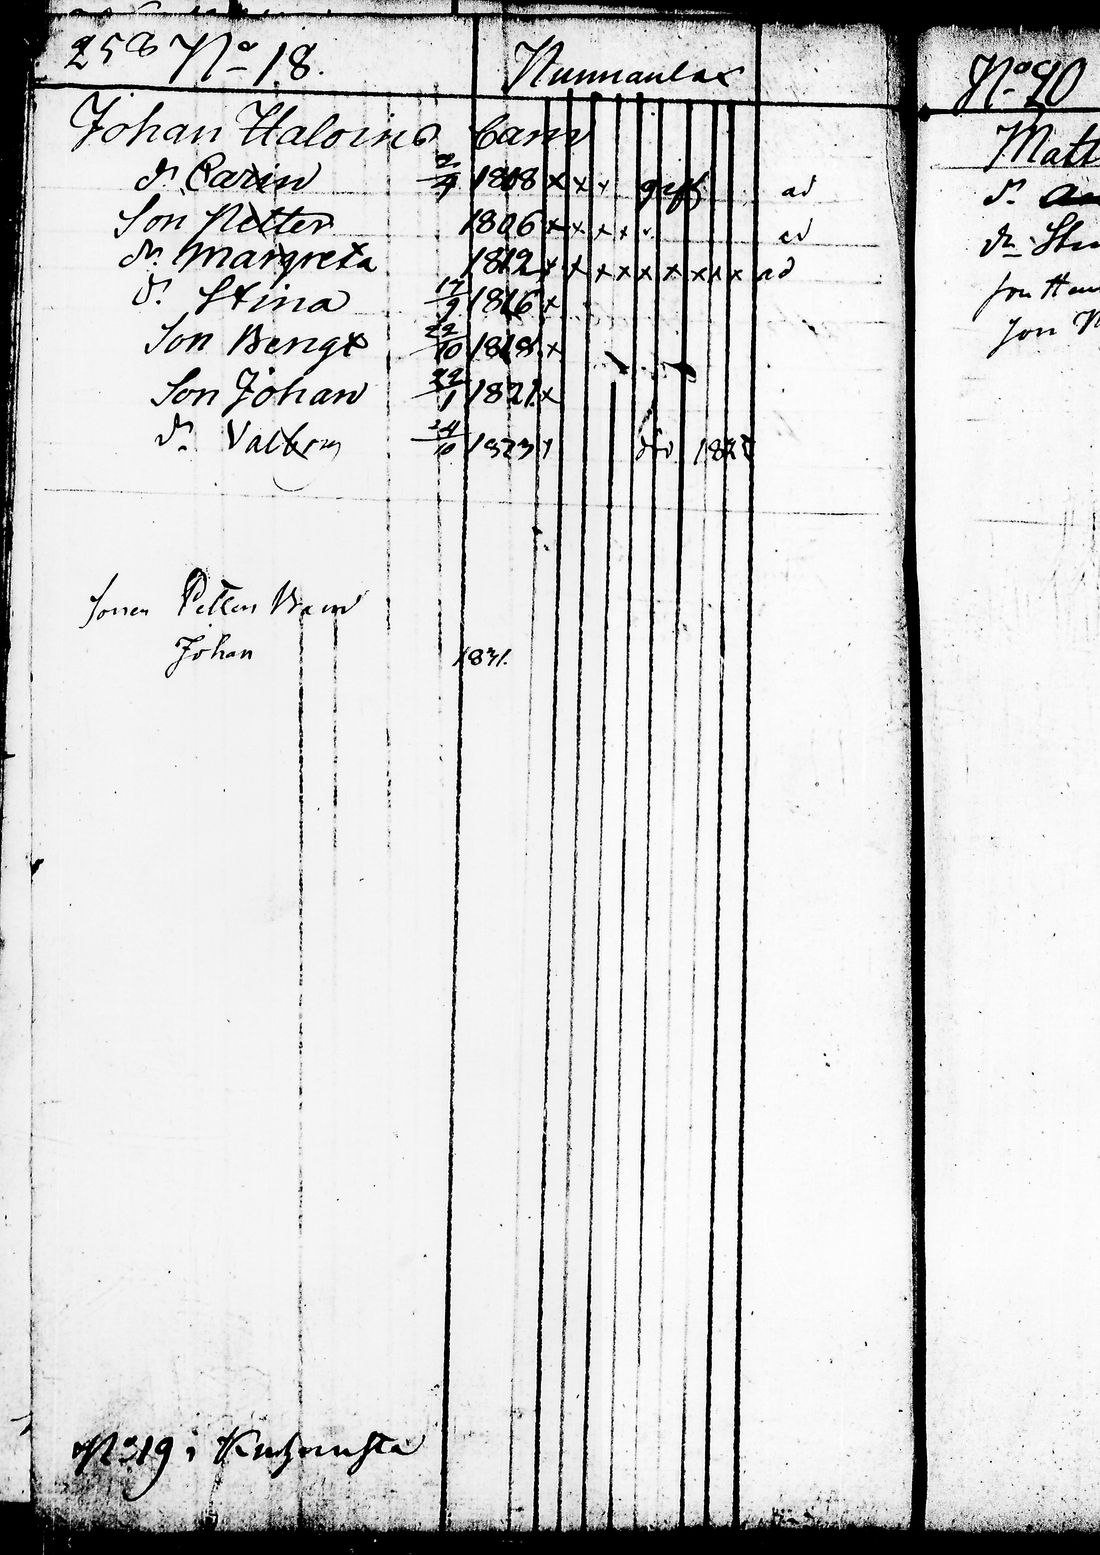 258 No 18. Nunnanlax
Johan Haloins Barn
dr Carin 2/9 1808 x x x gift ad
Son Petter 1806 x x x x ad
dr Margreta 1812 x x x x x x x x x ad
dr Stina 17/9 1816 x
Son Bengt 22/10 1818. x
Son Johan 22/1 1821. x
dr Valborg 24/10 1823 död 182
Sonen Petters Barn
Johan 1831.
No 19 i
No 20
Matt
dr
dr Sti
Son Hen
Son